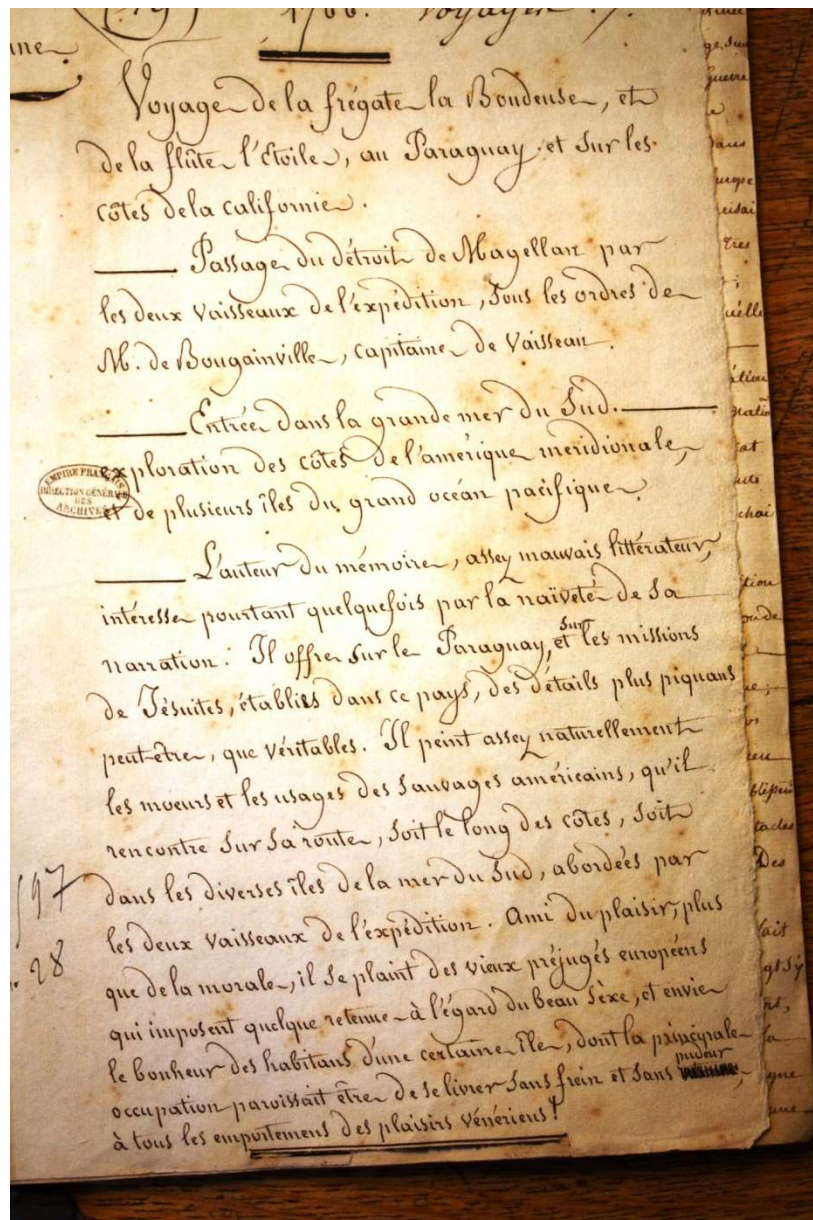 1766. Voyages.
Voyage de la frégate la Boudeuse, et
de la flûte l'Etoile, au Paraguay et sur les
côtes de la californie.
Passage du détroit de Magellan par
les deux vaisseaux de l'expédition, sous les ordres de
M. de Bougainville, capitaine de vaisseau.
Entrée dans la grande mer du Sud.
exploration des côtes de l'amérique meridionale,
et de plusieurs îles du grand océan pacifique.
EMPIRE FRANÇAIS
DIRECTION GÉNÉRALE
DES
ARCHIVES
L'auteur du mémoire, assez mauvais littérateur,
intéresse pourtant quelquefois par la naïveté de sa
narration. Il offre sur le Paraguay, et sur les missions
de Jésuites, établies dans ce pays, des détails plus piquans
peut-être, que véritables. Il peint assez naturellement
les moeurs et les usages des sauvages américains, qu'il
rencontre sur sa route, soit le long des côtes, soit
dans les diverses îles de la mer du Sud, abordées par
les deux vaisseaux de l'expédition. Ami du plaisir, plus
que de la morale, il se plaint des vieux préjugés européens
qui imposent quelque retenue à l'égard du beau sèxe, et envie
le bonheur des habitans d'une certaine île, dont la principale
occupation paroissait être de se livrer sans frein et sans pudeur,
à tous les emportemens des plaisirs vénériens!
28